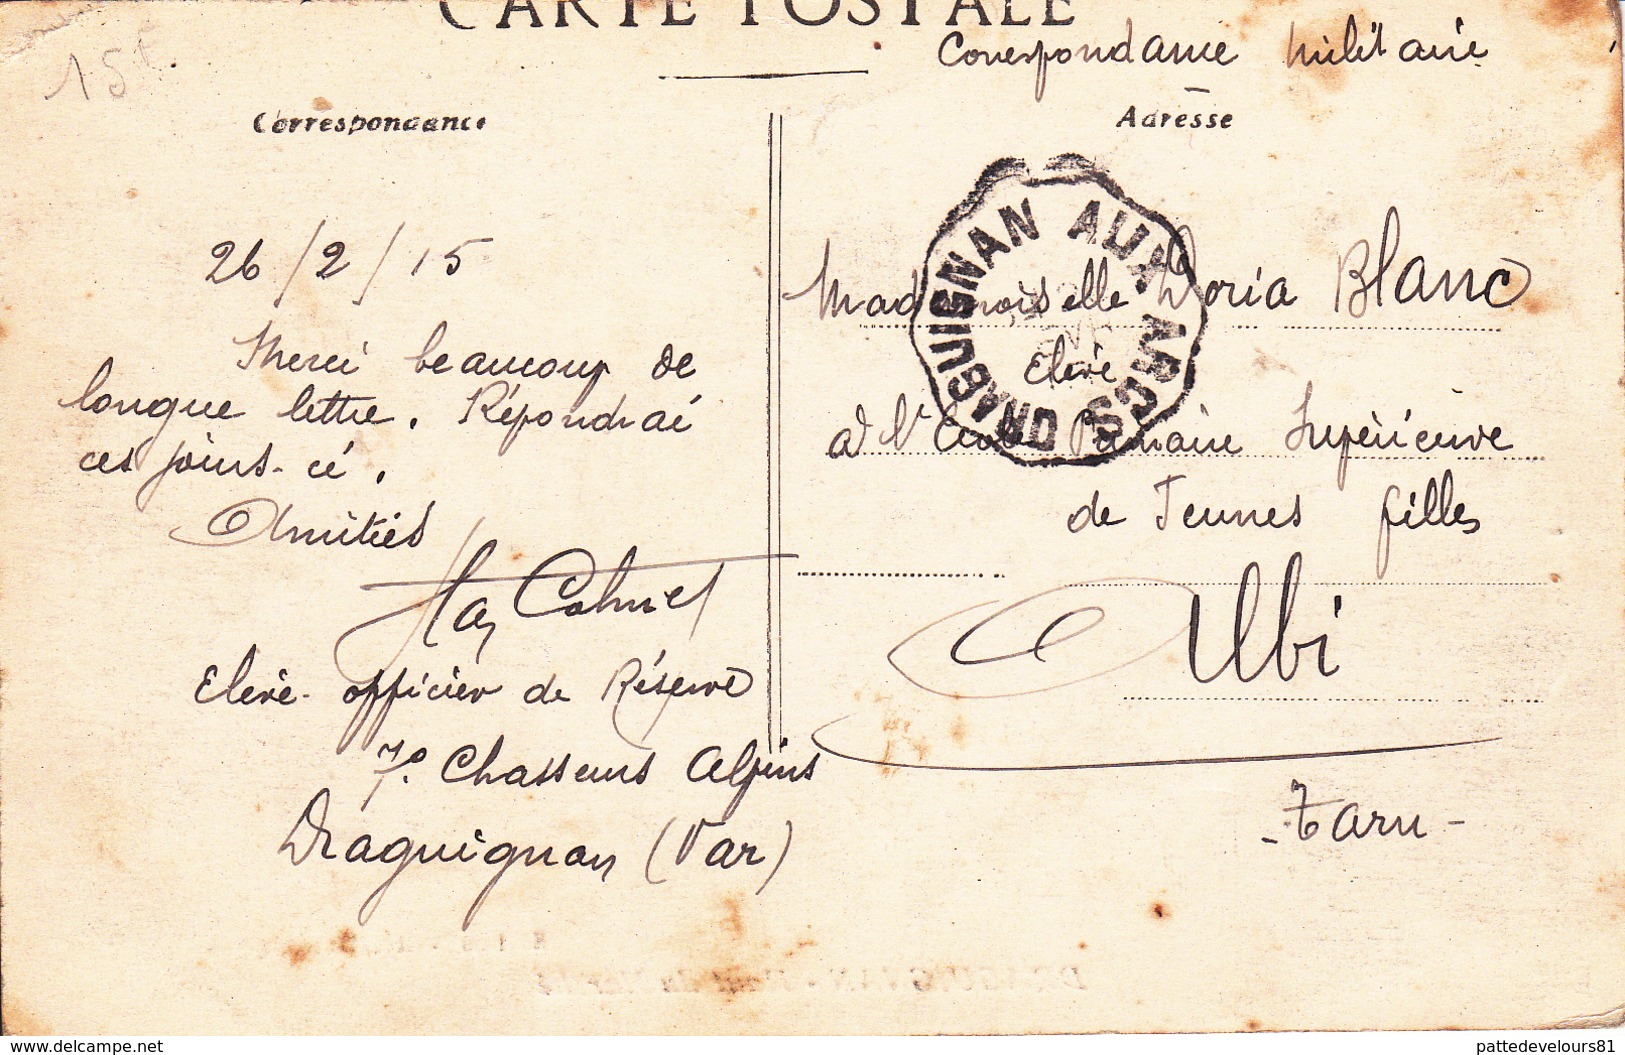 CARTE POSTALE
Correspondance militaire
15F
Correspondance
Adresse
26/2/15
Merci beaucoup de
longue lettre. Répondrai
ces jours-ci.
Amitiés
Elève-officier de Réserve
7e Chasseurs Alpins
Draguignan (Var)
DRAGUIGNAN AUX ARCS
Mademoiselle Doria Blanc
Elève
à l'Ecole Primaire Supérieure
de Jeunes filles
Albi
-Tarn-
www.delcampe.net
pattedevelours81